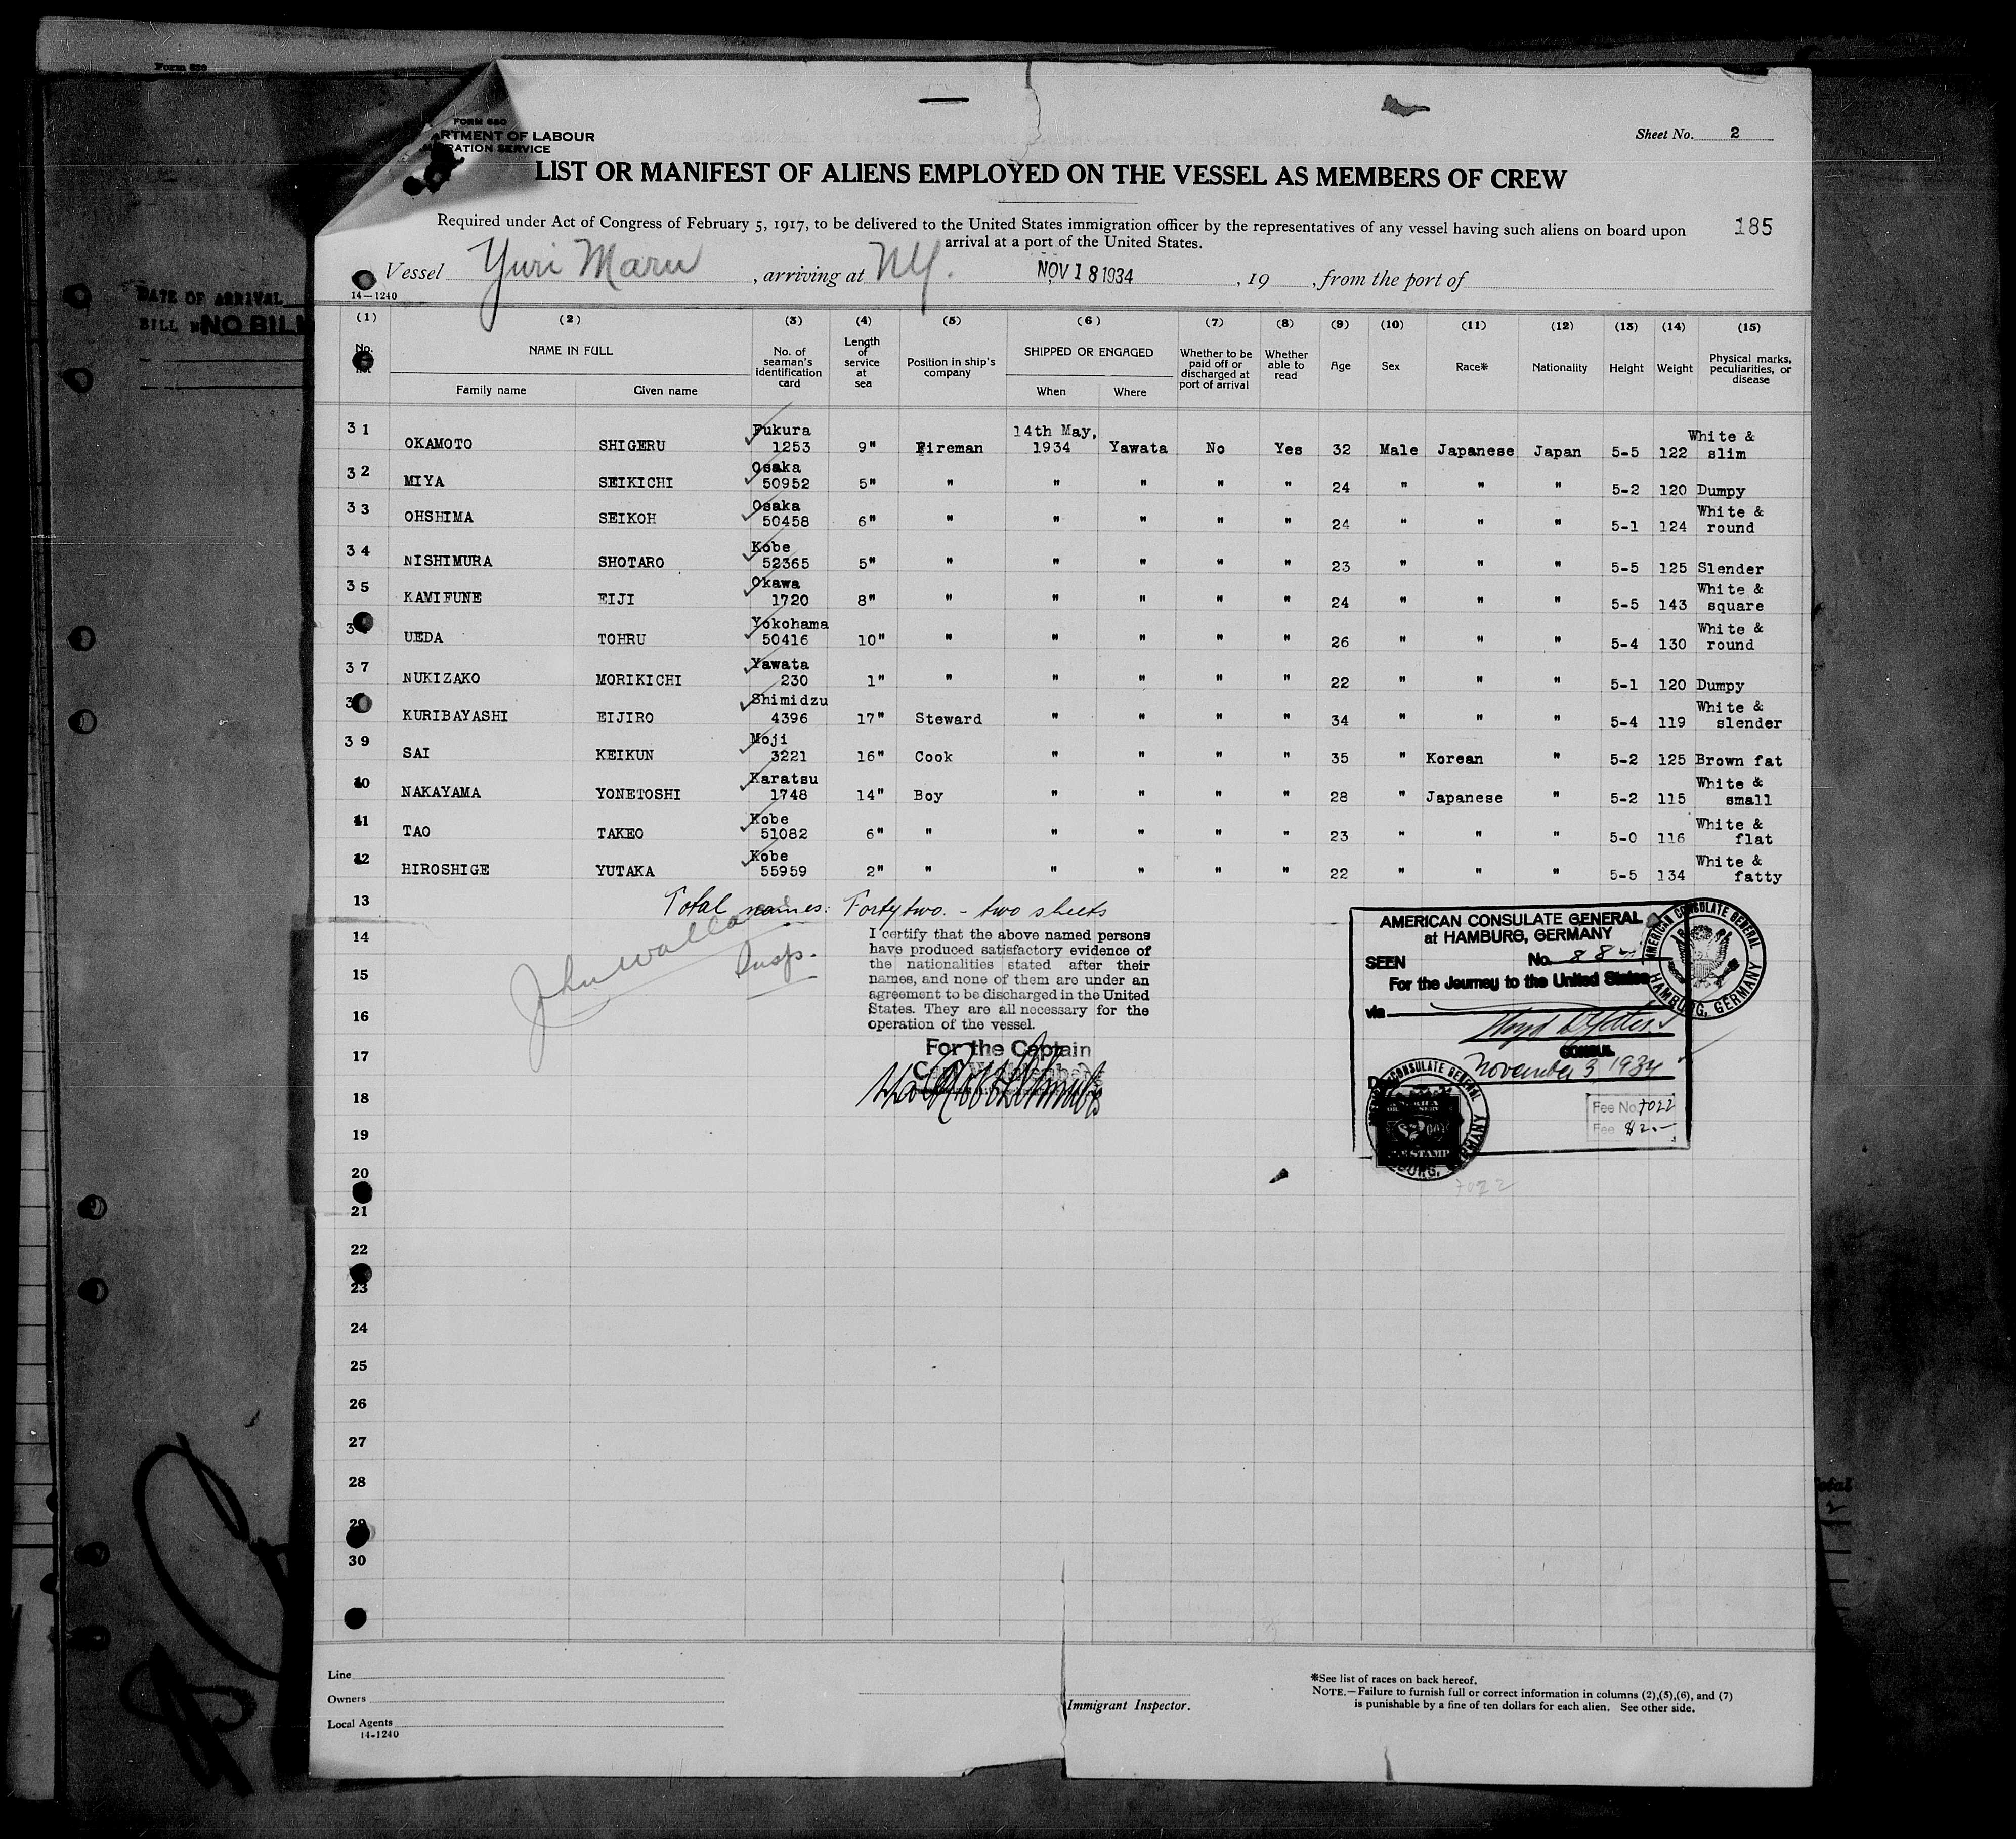 Form 680
FORM 680
ARTMENT OF LABOUR
RATION SERVICE
Sheet No. 2
LIST OR MANIFEST OF ALIENS EMPLOYED ON THE VESSEL AS MEMBERS OF CREW
Required under Act of Congress of February 5, 1917, to be delivered to the United States immigration officer by the representatives of any vessel having such aliens on board upon
arrival at a port of the United States.
185
Vessel Yuri Maru, arriving at NY. NOV 18 1934, 19 , from the port of
14—1240
DATE OF ARRIVAL
BILL NO BILL
(1) (2) (3) (4) (5) (6) (7) (8) (9) (10) (11) (12) (13) (14) (15)
No. NAME IN FULL Family name Given name No. of seaman's identification card Length of service at sea Position in ship's company SHIPPED OR ENGAGED When Where Whether to be paid off or discharged at port of arrival Whether able to read Age Sex Race* Nationality Height Weight Physical marks, peculiarities, or disease
31 OKAMOTO SHIGERU Fukura 1253 9" Fireman 14th May, 1934 Yawata No Yes 32 Male Japanese Japan 5-5 122 White & slim
32 MIYA SEIKICHI Osaka 50952 5" " " " " " 24 " " " 5-2 120 Dumpy
33 OHSHIMA SEIKOH Osaka 50458 6" " " " " " 24 " " " 5-1 124 White & round
34 NISHIMURA SHOTARO Kobe 52365 5" " " " " " 23 " " " 5-5 125 Slender
35 KAMIFUNE EIJI Okawa 1720 8" " " " " " 24 " " " 5-5 143 White & square
3 UEDA TOHRU Yokohama 50416 10" " " " " " 26 " " " 5-4 130 White & round
37 NUKIZAKO MORIKICHI Yawata 230 1" " " " " " 22 " " " 5-1 120 Dumpy
3 KURIBAYASHI EIJIRO Shimidzu 4396 17" Steward " " " " 34 " " " 5-4 119 White & slender
39 SAI KEIKUN Moji 3221 16" Cook " " " " 35 " Korean " 5-2 125 Brown fat
40 NAKAYAMA YONETOSHI Karatsu 1748 14" Boy " " " " 28 " Japanese " 5-2 115 White & small
41 TAO TAKEO Kobe 51082 6" " " " " " 23 " " " 5-0 116 White & flat
42 HIROSHIGE YUTAKA Kobe 55959 2" " " " " " 22 " " " 5-5 134 White & fatty
13 Total names: Forty two. - two sheets
14
15
16
17
18
19
20
21
22
23
24
25
26
27
28
29
30
John Walla
Insp.
I certify that the above named persons
have produced satisfactory evidence of
the nationalities stated after their
names, and none of them are under an
agreement to be discharged in the United
States. They are all necessary for the
operation of the vessel.
For the Captain
AMERICAN CONSULATE GENERAL
at HAMBURG, GERMANY
SEEN No.
For the Journey to the United States
via
CONSUL
November 3, 1934
Fee No. 7022
Fee $2.—
AMERICAN CONSULATE GENERAL
HAMBURG, GERMANY
7022
Line
Owners
Local Agents
14-1240
Immigrant Inspector.
*See list of races on back hereof.
NOTE.—Failure to furnish full or correct information in columns (2),(5),(6), and (7)
is punishable by a fine of ten dollars for each alien. See other side.